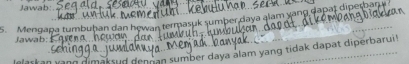 Jawab: Segala sesuatu yang
untuk memenuhi kebutuhan
5. Mengapa tumbuhan dan hewan termasuk sumber daya alam yang dapat diperbarui?
Jawab: Karena hewan dan tumbuh-tumbuhan dapat dikembangbiakkan
sehingga jumlahnya menjadi banyak
Jelaskan yang dimaksud dengan sumber daya alam yang tidak dapat diperbarui!